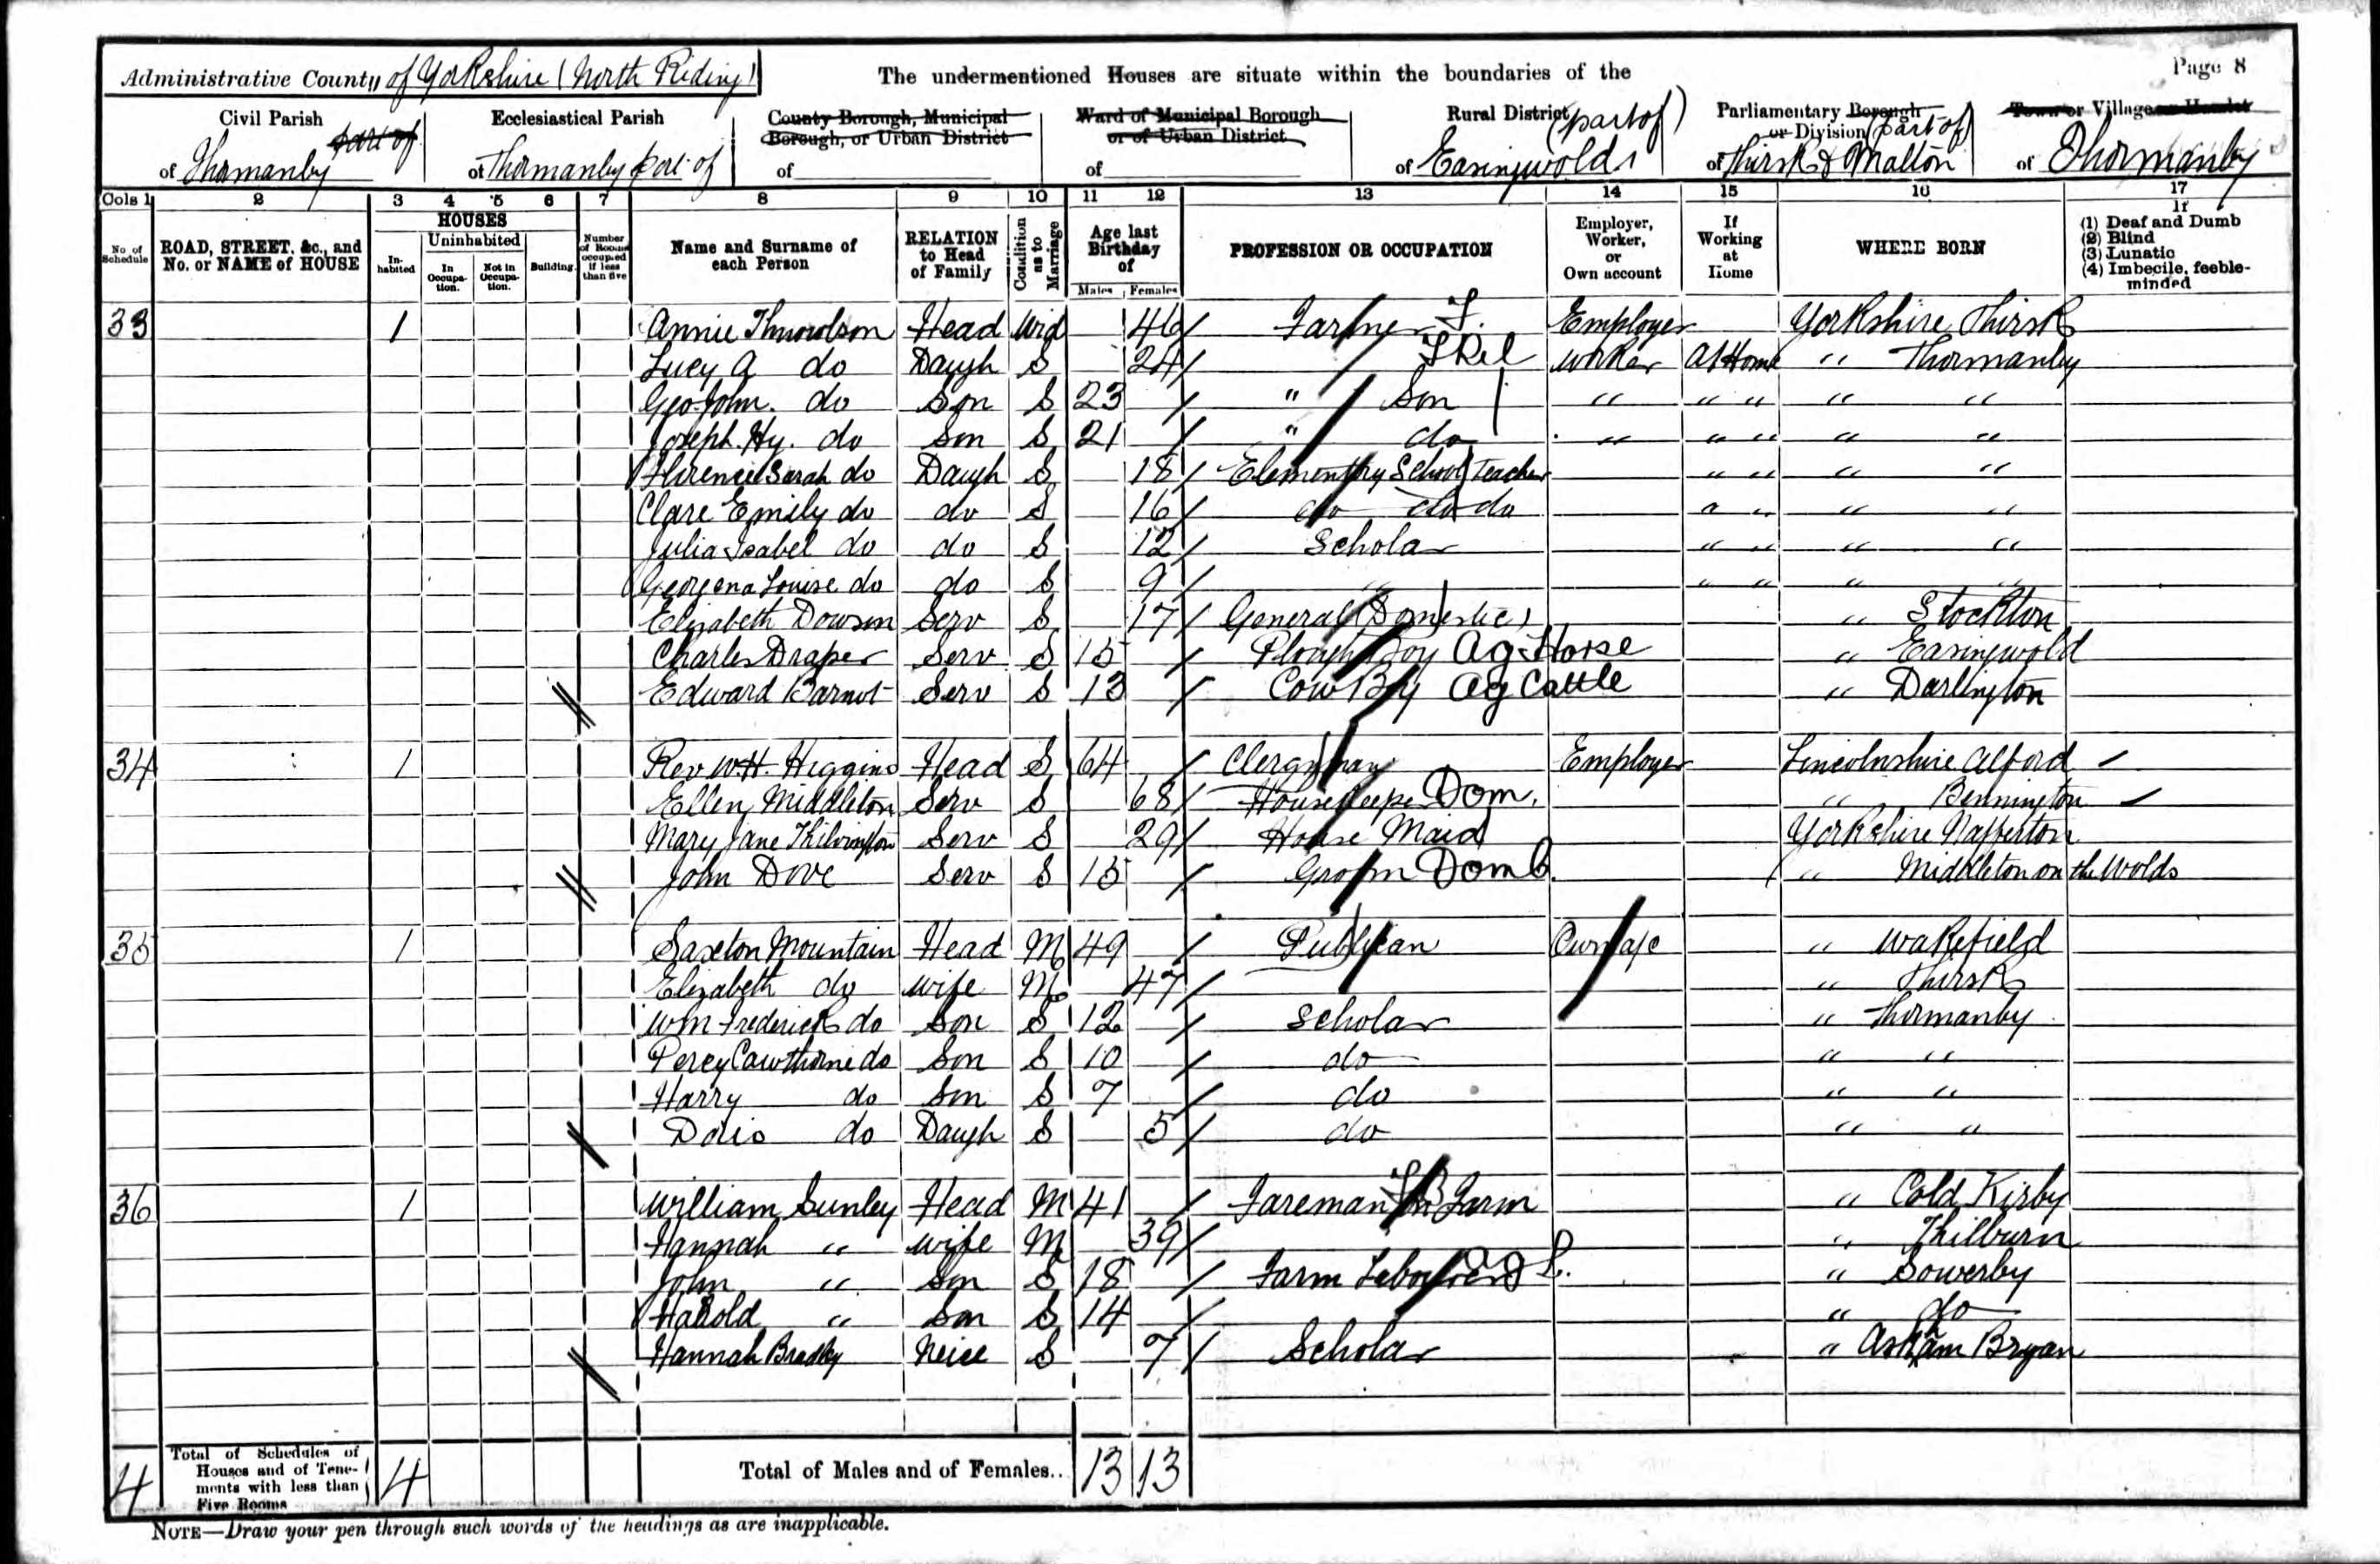 Administrative County of Yorkshire (North Riding)
The undermentioned Houses are situate within the boundaries of the
Page 8
Civil Parish of Thormanby part of
Ecclesiastical Parish of Thormanby part of
County Borough, Municipal Borough, or Urban District of
Ward of Municipal Borough or of Urban District of
Rural District (part of) of Easingwold
Parliamentary Borough or Division (part of) of Thirsk & Malton
Town or Village or Hamlet of Thormanby
Cols 1 2 3 4 5 6 7 8 9 10 11 12 13 14 15 16 17
No. of Schedule
ROAD, STREET, &c., and No. or NAME of HOUSE
HOUSES
Inhabited
Uninhabited
In Occupation.
Not in Occupation.
Building.
Number of Rooms occupied if less than five
Name and Surname of each Person
RELATION to Head of Family
Condition as to Marriage
Age last Birthday of
Males Females
PROFESSION OR OCCUPATION
Employer, Worker, or Own account
If Working at Home
WHERE BORN
If
(1) Deaf and Dumb
(2) Blind
(3) Lunatic
(4) Imbecile, feeble-minded
33 1 Annie Head Wid 46 Farmer F. Employer Yorkshire Thirsk
Lucy A do Daugh S 24 F Rel Worker At Home " Thormanby
Geo John. do Son S 23 " Son " " " " "
Joseph Hy. do Son S 21 " do " " " " "
Florence Sarah do Daugh S 18 Elementry School Teacher " " " "
Clare Emily do do S 16 do do do " " " "
Julia Isabel do do S 12 Scholar " " " "
Georgena Louise do do S 9 " " " " "
Elizabeth Dowson Serv S 17 General (Domestic) " Stockton
Charles Draper Serv S 15 Plough Boy Ag Horse " Easingwold
Edward Serv S 13 Cow Boy Ag Cattle " Darlington
34 1 Rev W.H. Higgins Head S 64 Clergyman Employer Lincolnshire Alford
Ellen Middleton Serv S 68 Housekeeper Dom. " Bennington
Mary Jane Serv S 29 House Maid Yorkshire Nafferton
John Dove Serv S 15 Groom Dom " Middleton on the Wolds
35 1 Saxton Mountain Head M 49 Publican Own a/c " Wakefield
Elizabeth do Wife M 47 " Thirsk
Wm Frederick do Son S 12 Scholar " Thormanby
Percy Cawthorne do Son S 10 do " "
Harry do Son S 7 do " "
Doris do Daugh S 5 do " "
36 1 William Sunley Head M 41 Foreman on Farm " Cold Kirby
Hannah " Wife M 39 " Kilburn
John " Son S 18 Farm Labourer " Sowerby
Harold " Son S 14 " do
Hannah Bradley Neice S 7 Scholar " Askham Bryan
4 Total of Schedules of Houses and of Tenements with less than Five Rooms 4
Total of Males and of Females.. 13 13
NOTE—Draw your pen through such words of the headings as are inapplicable.